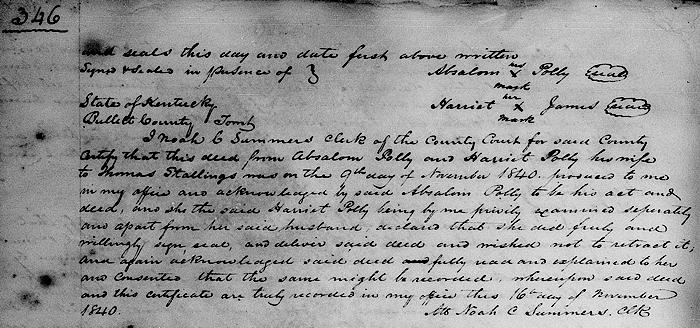 346
and seals this day and date first above written
Signed & Sealed in presence of } Absalom his x mark Polly (seal)
State of Kentucky Harriet her x mark James (seal)
Bullitt County Towit
I Noah C Summers clerk of the County Court for said County
certify that this deed from Absalom Polly and Harriet Polly his wife
to Thomas Stallings was on the 9th day of November 1840. produced to me
in my office and acknowledged by said Absalom Polly to be his act and
deed, and she the said Harriet Polly being by me privily examined seperately
and apart from her said husband, declared that she did freely and
willingly sign seal, and deliver said deed and wished not to retract it,
and again acknowledged said deed and fully read and explained to her
and consented that the same might be recorded, whereupon said deed
and this certificate are truly recorded in my office this 16th day of November
1840. Att Noah C Summers. Clk